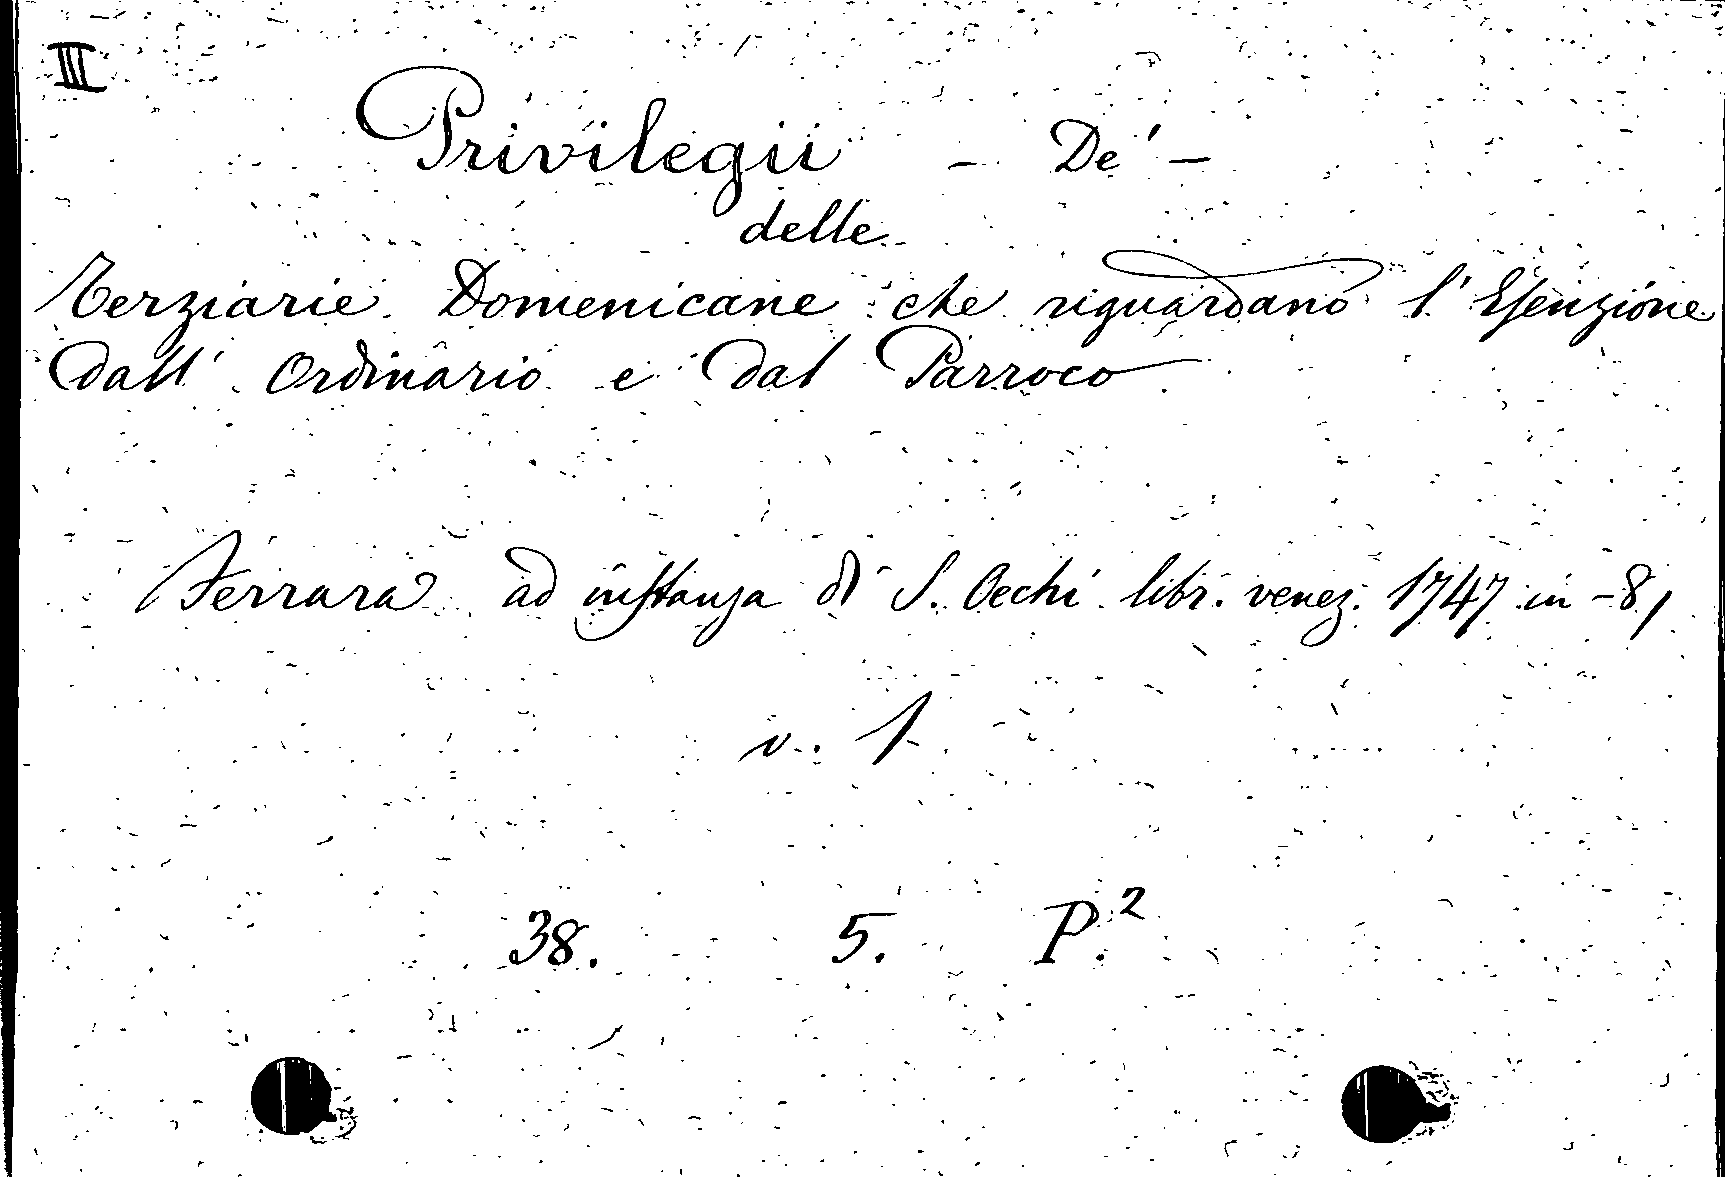 III
Privilegii - De' -
delle
Terziarie Domenicane che riguardano l'Esenzione
dall' Ordinario e dal Parroco
Ferrara ad instanza di S. Occhi libr. venez. 1747 in-8,
v. 1
38. 5. P.²